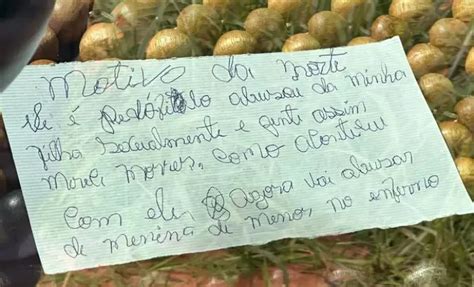 Motivo da morte
Ele é pedófilo abusou da minha
filha sexualmente e gente assim
merece morrer, como aconteceu
com ele, agora vai abusar
de menina de menor no inferno